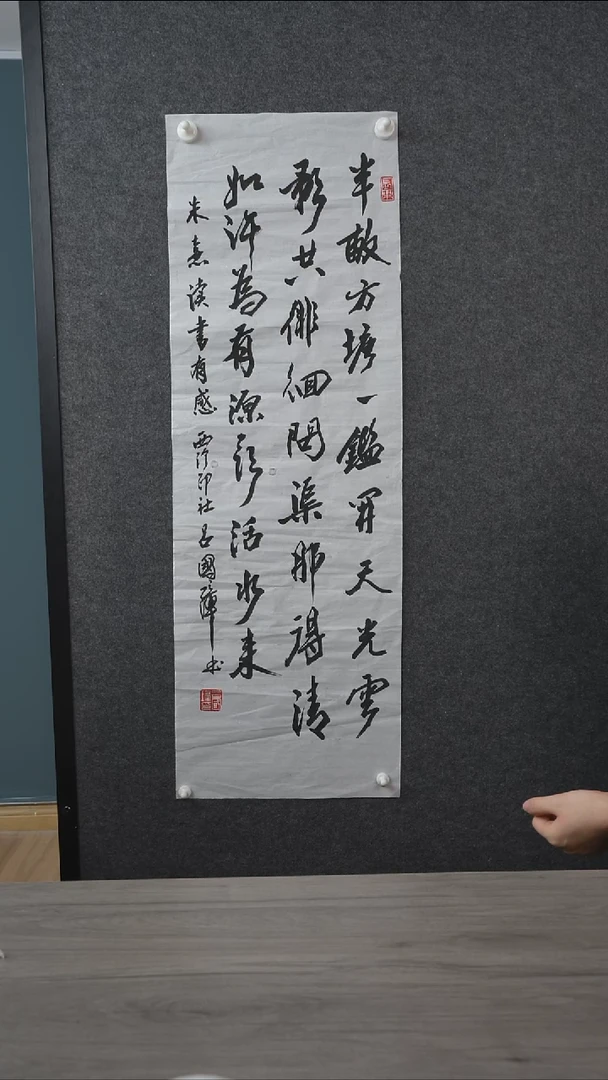 半畝方塘一鑑開天光雲
影共徘徊問渠那得清
如許為有源頭活水来
朱熹讀書有感 西泠印社 吕國璋书